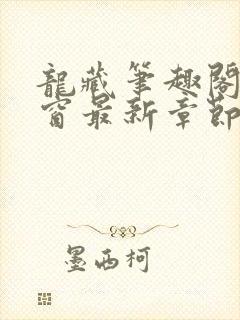 龍藏筆趣閣
窗最新章節
墨西柯